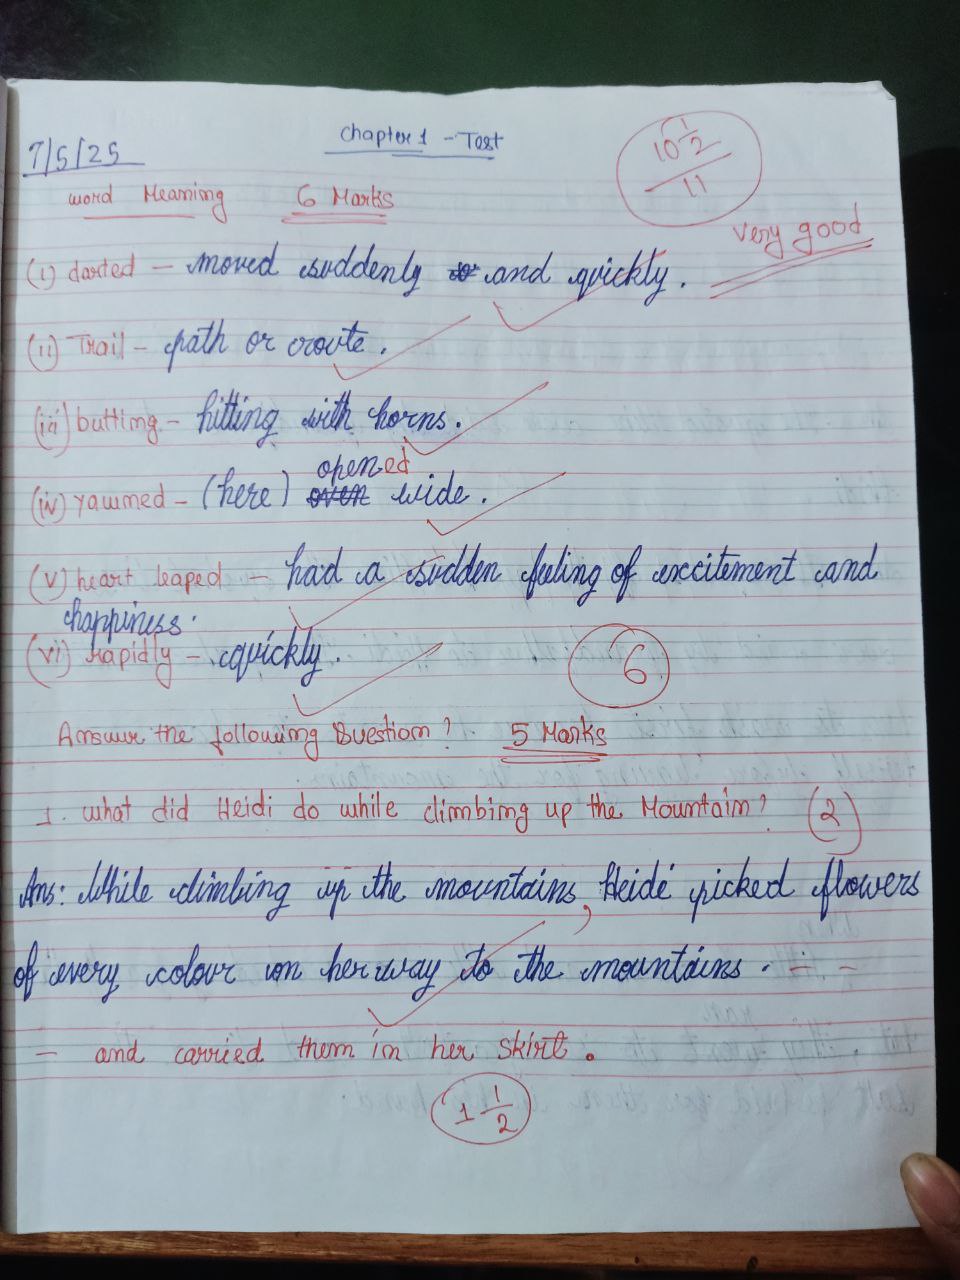 7/5/25
Chapter 1 - Test
10 1/2
11
word Meaning 6 Marks
very good
(i) darted - moved suddenly and quickly.
(ii) Trail - path or route.
(iii) butting - hitting with horns.
opened
(iv) yawned - (here) wide.
(v) heart leaped - had a sudden feeling of excitement and
happiness.
(vi) rapidly - quickly.
6
Answer the following Question? 5 Marks
1. what did Heidi do while climbing up the Mountain? (2)
Ans: While climbing up the mountains, Heidi picked flowers
of every colour on her way to the mountains. - -
- and carried them in her skirt.
1 1/2